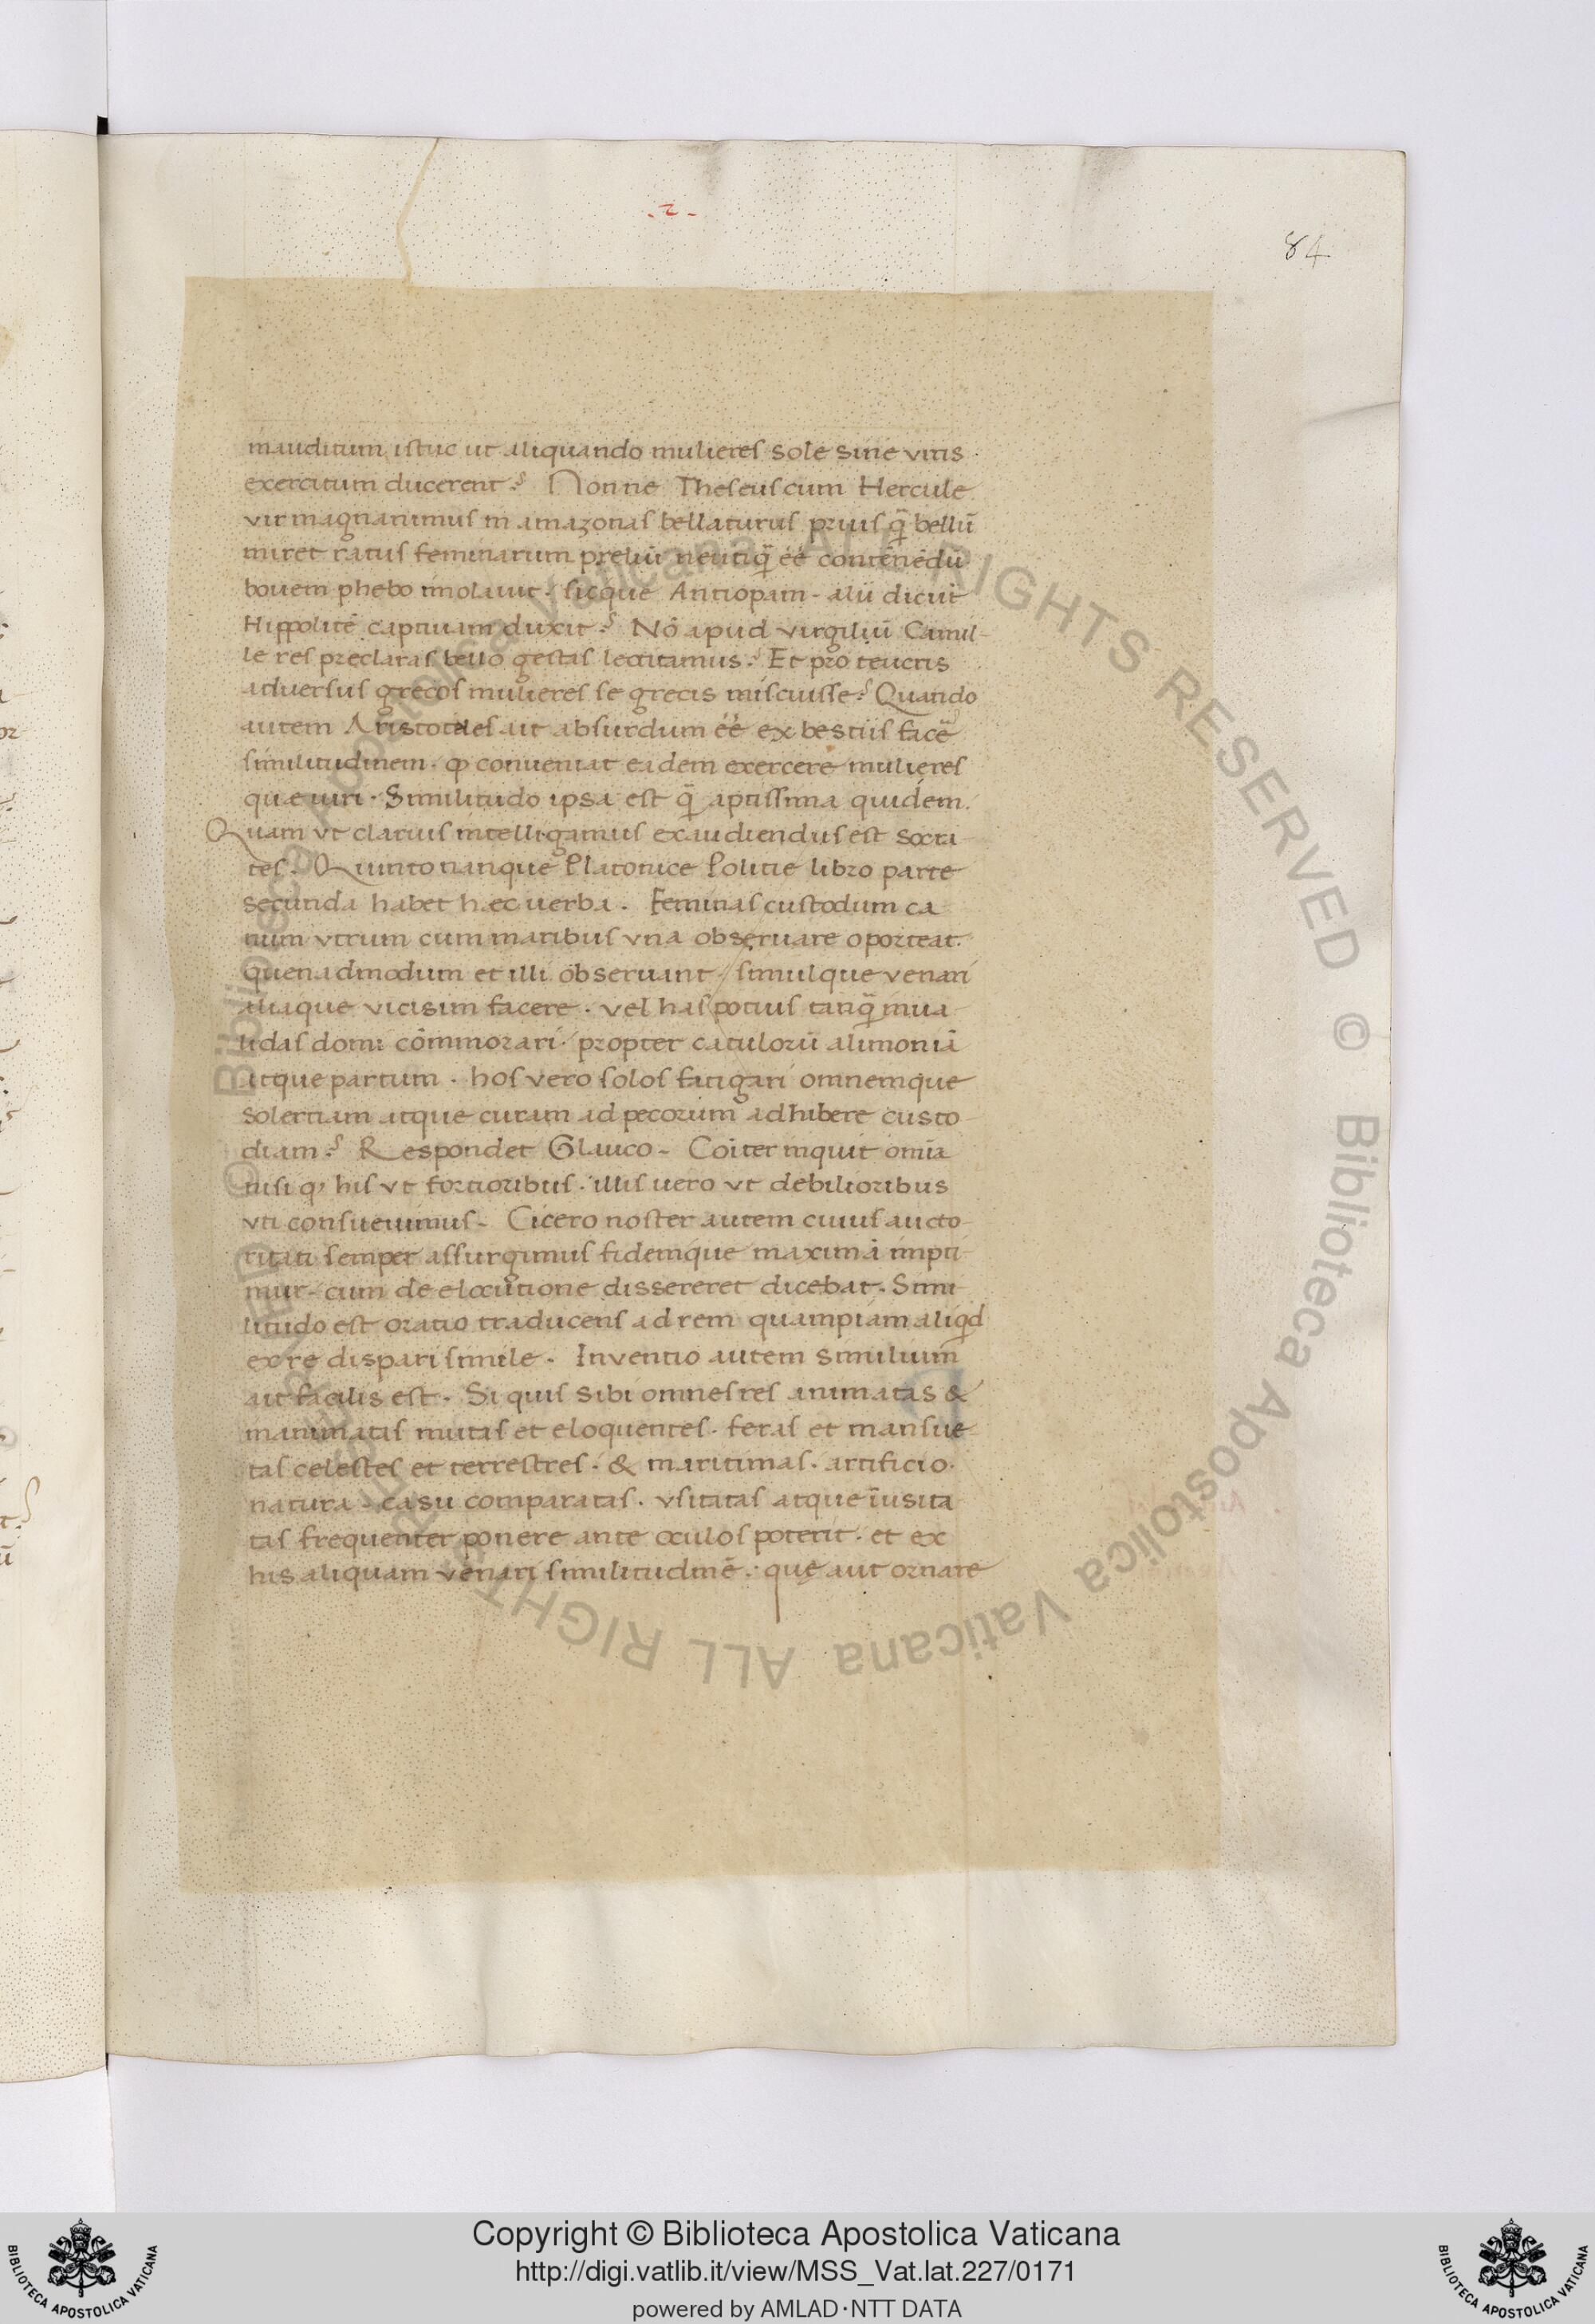 .2.
84
inauditum istuc ut aliquando mulieres sole sine viris
exercitum ducerent? Nonne Theseus cum Hercule
vir magnanimus in amazonas bellaturus prius q̃ bellũ
iniret ratus feminarum preliũ neutiq̃ eē contēnēdũ
bovem phebo īmolavit. sicque Antiopam. alii dicūt
Hippolitē captivam duxit? Nō apud virgiliũ Camil-
le res preclaras bello gestas lectitamus? Et pro teucris
adversus grecos mulieres se grecis miscuisse? Quando
autem Aristoteles ait absurdum eē ex bestiis facẽ
similitudinem. ꝙ conveniat eadem exercere mulieres
quæ viri. Similitudo ipsa est q̃ aptissima quidem.
Quam ut clarius intelligamus exaudiendus est socra
tes. Quinto nanque Platonice Politie libro parte
secunda habet hæc verba. Feminas custodum ca
num vtrum cum maribus vna observare oporteat.
quenadmodum et illi observant. simulque venari
aliaque vicisim facere. vel has potius tanq̃ inva
lidas domi cōmmorari. propter catulorũ alimoniā
atque partum. hos vero solos fatigari omnemque
solertiam atque curam ad pecorum adhibere custo
diam? Respondet Glauco. Cōiter inquit omīa
nisi ꝙ his vt fortioribus. illis vero vt debilioribus
vti consuevimus. Cicero noster autem cuius aucto-
ritati semper assurgimus fidemque maximā imparti-
mur. cum de elocutione dissereret dicebat. Simi-
litudo est oratio traducens ad rem quampiam aliq̃d
ex re dispari simile. Inventio autem similium
ait facilis est. Si quis sibi omnes res animatas &
inanimatas mutas et eloquentes. feras et mansue
tas celestes et terrestres. & maritimas. artificio.
natura. casu comparatas. vsitatas atque īusita
tas frequenter ponere ante oculos poterit. et ex
his aliquam venari similitudinē. quę aut ornare
© Biblioteca Apostolica Vaticana ALL RIGHTS RESERVED © Biblioteca Apostolica Vaticana ALL RIGHTS RESERVED
Copyright © Biblioteca Apostolica Vaticana
http://digi.vatlib.it/view/MSS_Vat.lat.227/0171
powered by AMLAD·NTT DATA
BIBLIOTECA APOSTOLICA VATICANA
BIBLIOTECA APOSTOLICA VATICANA